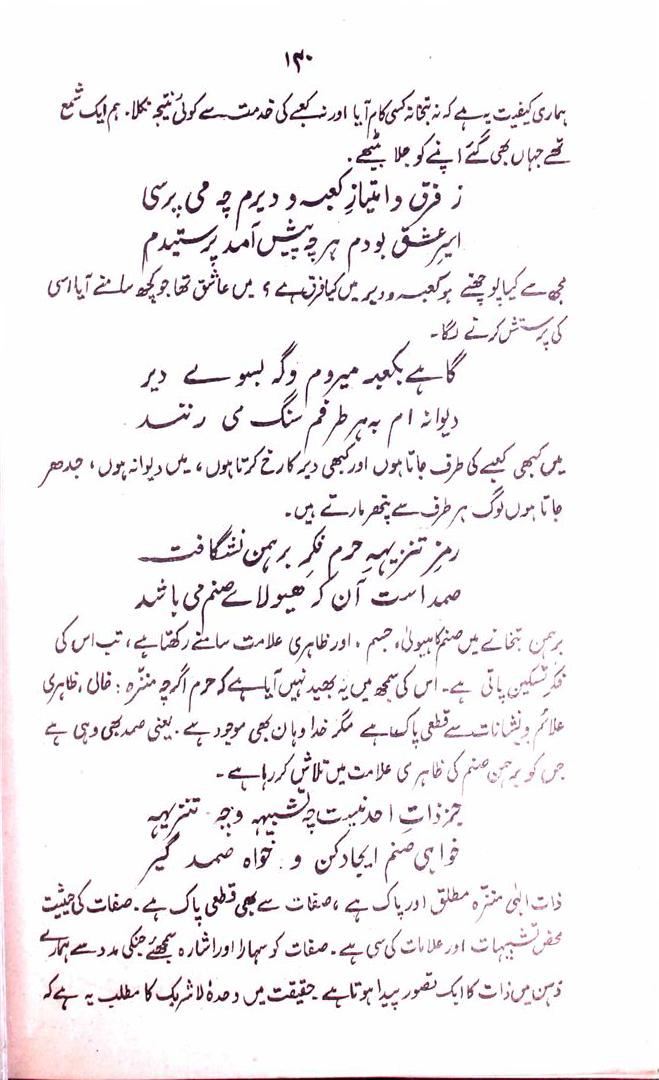 ۱۳۰
ہماری کیفیت یہ ہے کہ نہ بتخانہ کسی کام آیا اور نہ کعبے کی خدمت سے کوئی نتیجہ نکلا۔ ہم ایک شمع
تھے جہاں بھی گئے اپنے کو جلا بیٹھے۔
ز فرق و امتیازِ کعبہ و دیرم چہ می پرسی
اسیرِ عشق بودم ہر چہ پیش آمد پرستیدم
مجھ سے کیا پوچھتے ہو کعبہ و دیر میں کیا فرق ہے ؟ میں عاشق تھا جو کچھ سامنے آیا اسی
کی پرستش کرنے لگا۔
گاہے بکعبہ میروم و گہ بسوے دیر
دیوانہ ام بہ ہر طرفم سنگ می زنند
میں کبھی کعبے کی طرف جاتا ہوں اور کبھی دیر کا رخ کرتا ہوں، میں دیوانہ ہوں، جدھر
جاتا ہوں لوگ ہر طرف سے پتھر مارتے ہیں۔
رمزِ تنزیہہِ حرم فکرِ برہمن نشگافت
صمد است آن کہ ھیولاے صنم می باشد
برہمن بتخانے میں صنم کا ہیولیٰ، جسم، اور ظاہری علامت سامنے رکھتا ہے، تب اس کی
فکر تسکین پاتی ہے۔ اس کی سمجھ میں یہ بھید نہیں آیا ہے کہ حرم اگرچہ منزّہ : خالی، ظاہری
علائم و نشانات سے قطعی پاک ہے مگر خدا وہان بھی موجود ہے۔ یعنی صمد بھی وہی ہے
جس کو برہمن صنم کی ظاہری علامت میں تلاش کر رہا ہے۔
جز ذاتِ احد نیست چہ تشبیہہ و چہ تنزیہہ
خواہی صنم ایجاد کن و خواہ صمد گیر
ذات الہٰی منزّہ مطلق اور پاک ہے، صفات سے بھی قطعی پاک ہے۔ صفات کی حیثیت
محض تشبیہات اور علامات کی سی ہے۔ صفات کو سہارا اور اشارہ سمجھئے جنکی مدد سے ہمارے
ذہن میں ذات کا ایک تصور پیدا ہوتا ہے۔ حقیقت میں وحدہٗ لاشریک کا مطلب یہ ہے کہ